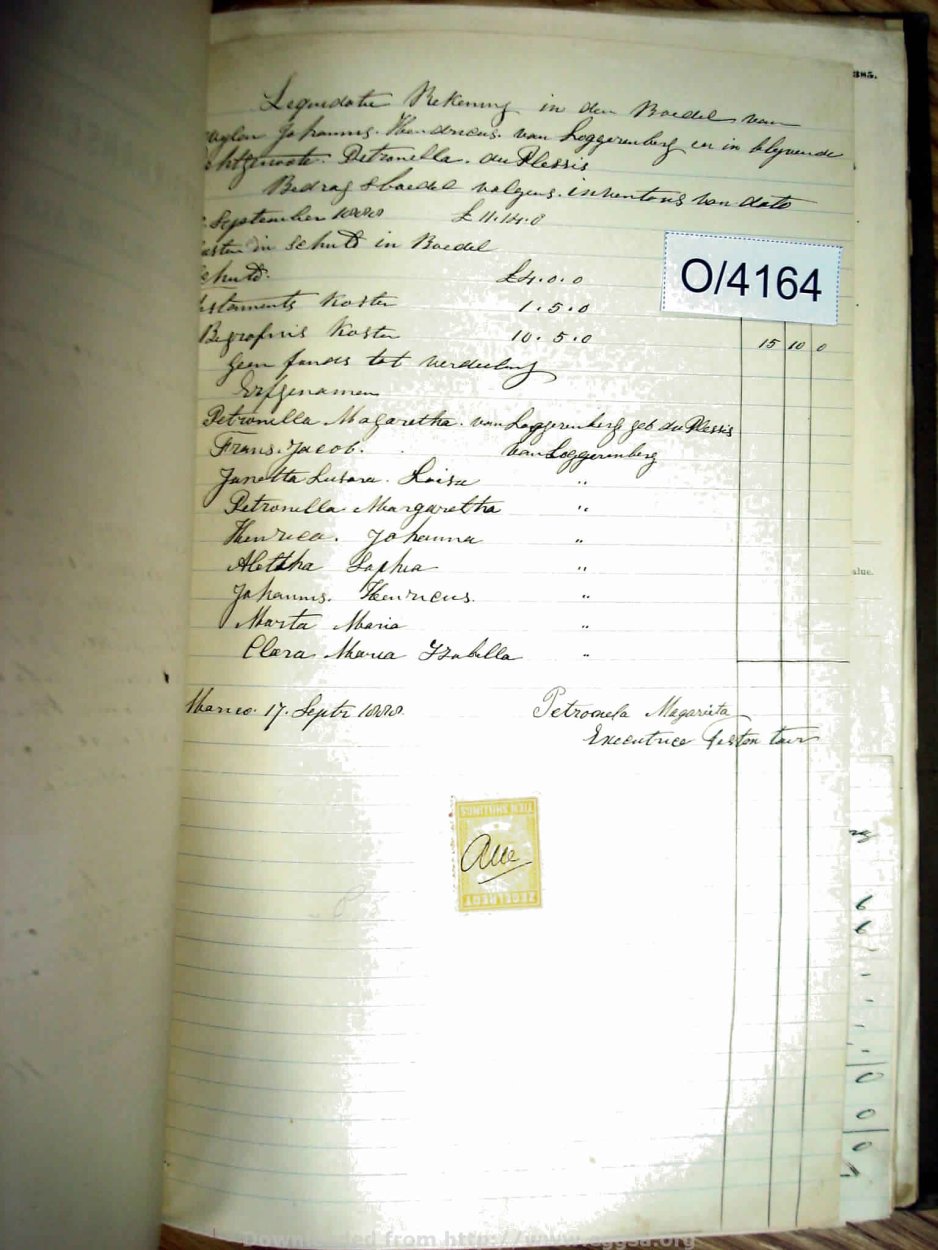 385.
Lequidatie Rekening in den Boedel van
wylen Johannis Hendricus van Loggerenberg en in blyvende
Echtgenoote Petronella du Plessis
Bedrag Sboedel volgens inventaris van dato
September 1888 £ 11.14.0
Lasten in Schuld in Boedel
Schuld £4.0.0
Testaments Kosten 1.5.0
Begrafnis Kosten 10.5.0 15 10 0
O/4164
Geen funds tot verdeeling
Erfgenamen
Petronella Magaretha van Loggerenberg geb du Plessis
Frans Jacob van Loggerenberg
Janetta Loisa "
Petronella Margaretha "
Henrica Johanna "
Alettha Sophia "
Johannis Henricus "
Marta Maria "
Clara Maria Izabella "
17. Septr 1888 Petronela Magarieta
Executrice Testen tair
TIEN SHILLINGS
ZEGELREGT
alue.
Downloaded from http://www.eggsa.org